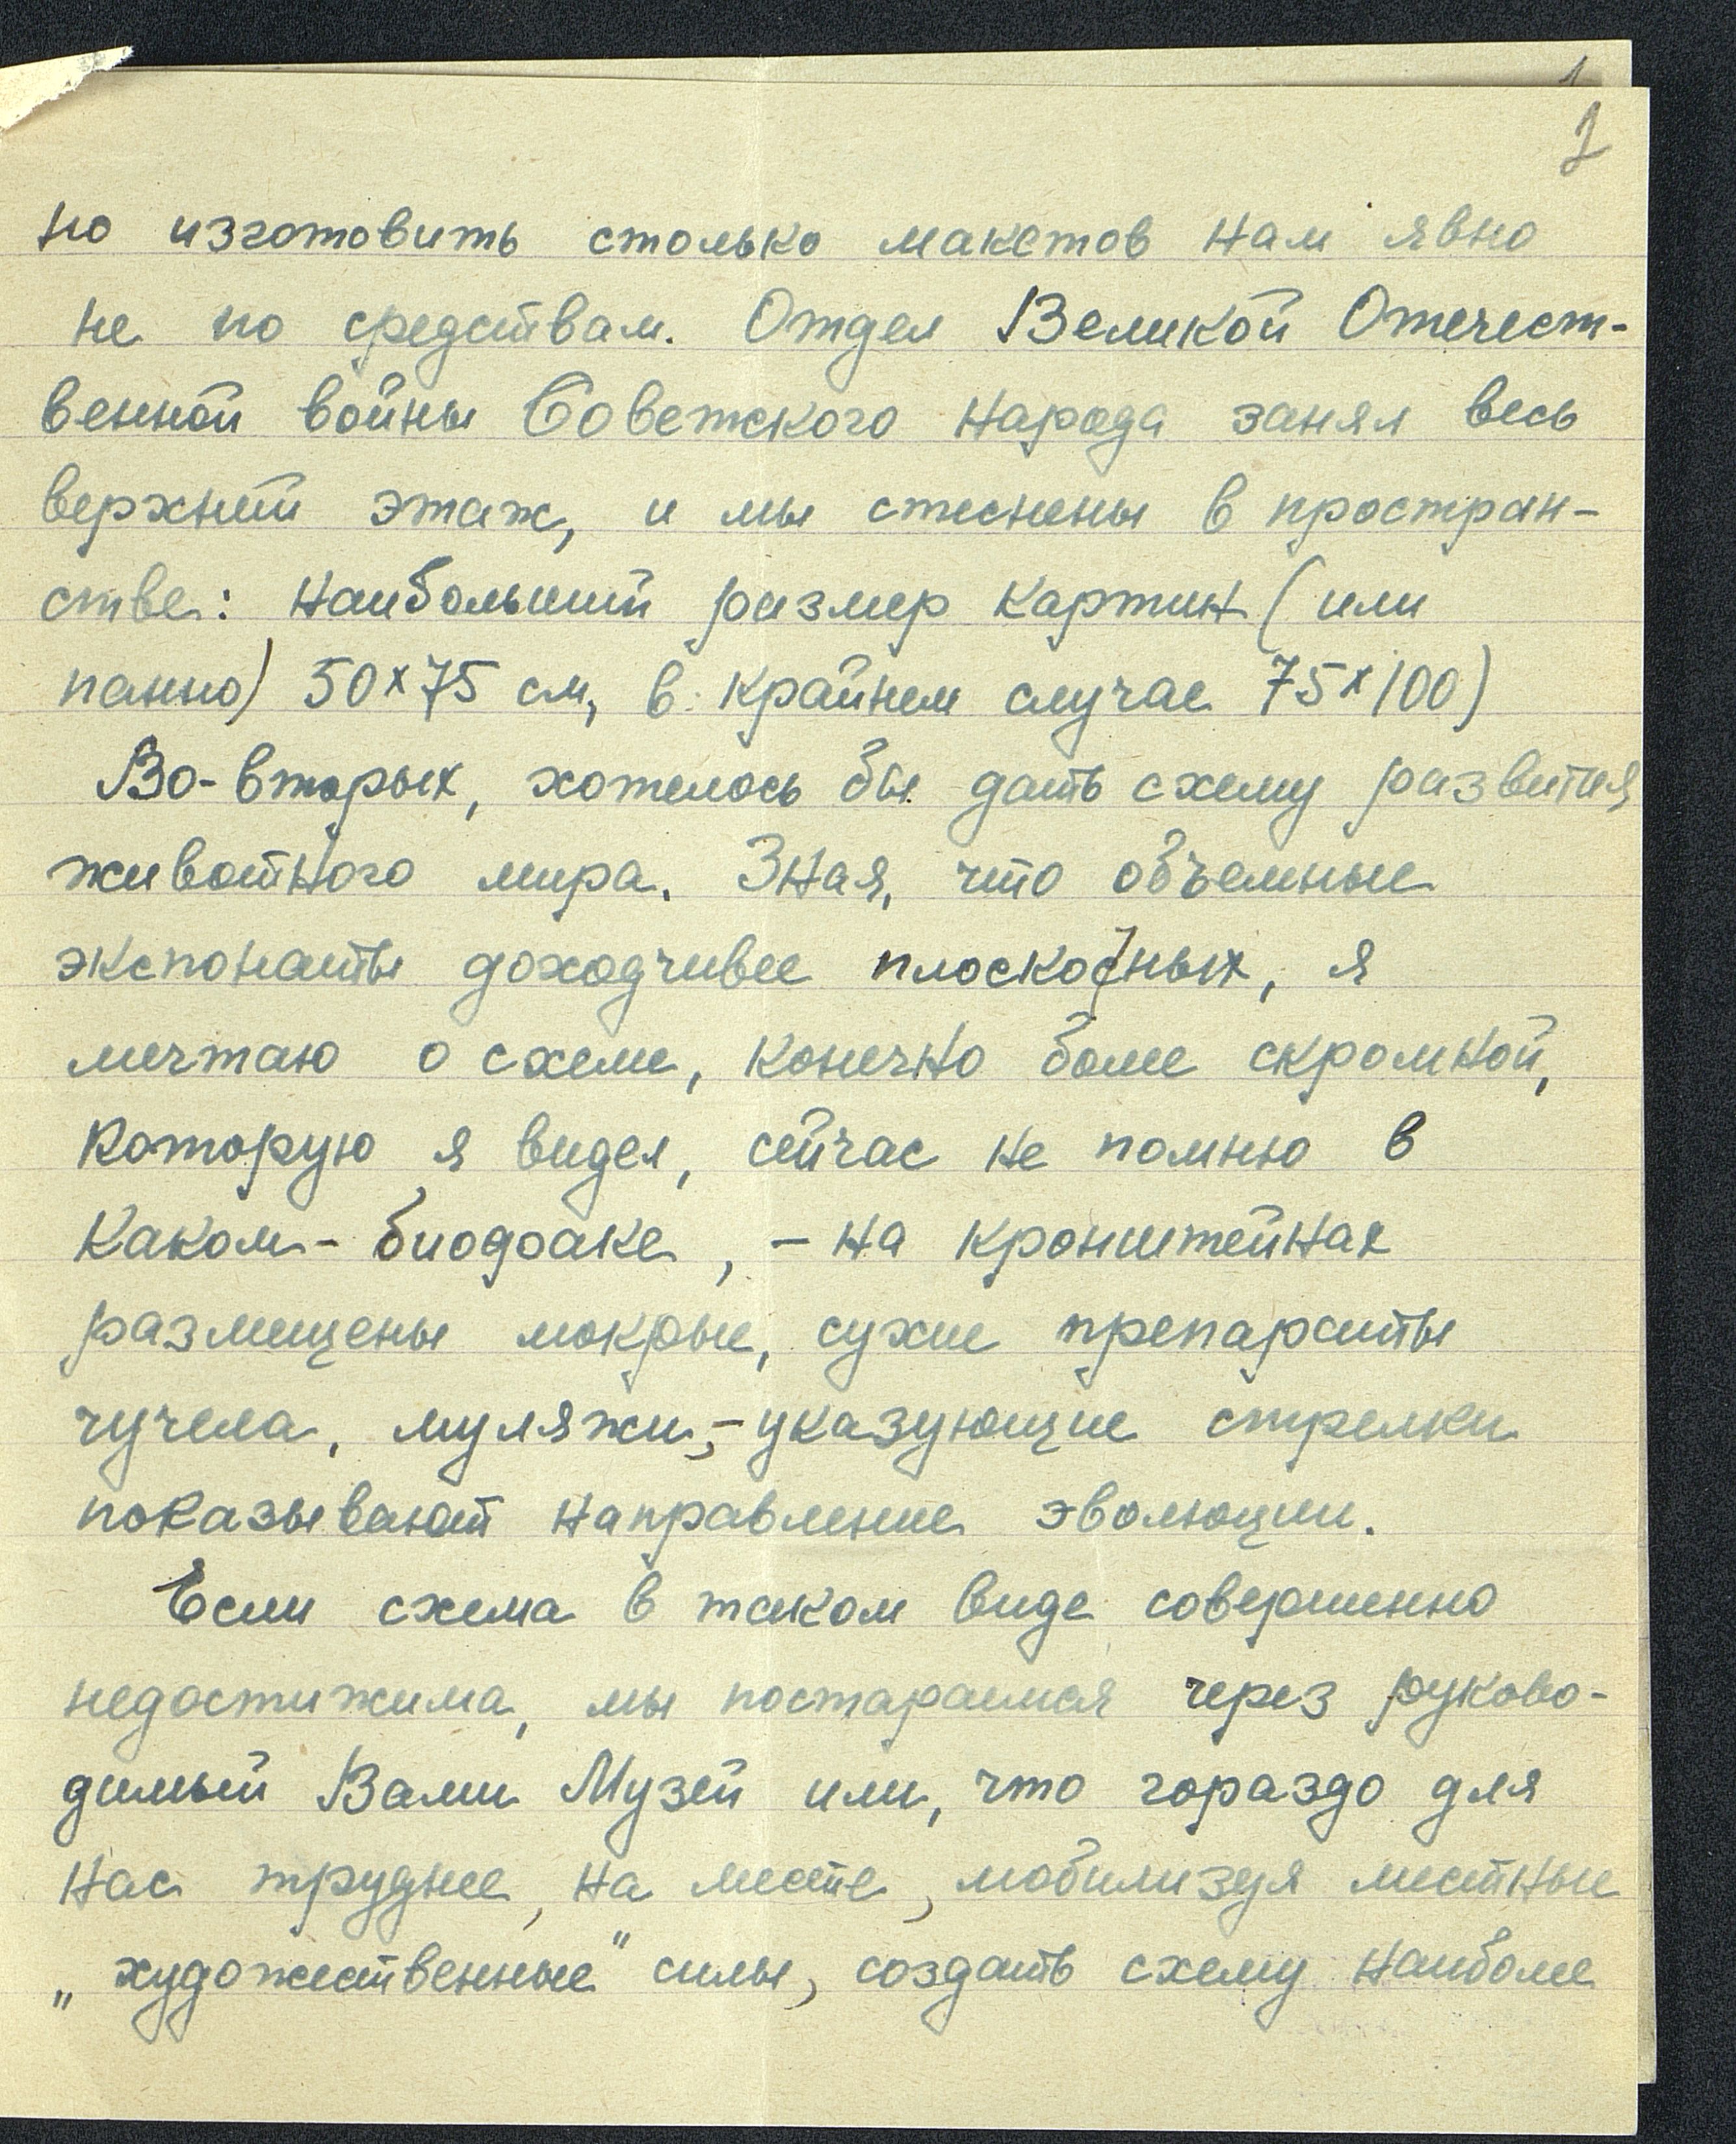 2
но изготовить столько макетов нам явно
не по средствам. Отдел Великой Отечест-
венной войны Советского народа занял весь
верхний этаж, и мы стеснены в простран-
стве: наибольший размер картин (или
панно) 50×75 см, в крайнем случае 75×100)
Во-вторых, хотелось бы дать схему развития
животного мира. Зная, что объемные
экспонаты доходчивее плоскостных, я
мечтаю о схеме, конечно более скромной,
которую я видел, сейчас не помню в
каком- биофаке, - на кронштейнах
размещены мокрые, сухие препараты
чучела, муляжи,- указующие стрелки
показывают направление эволюции.
Если схема в таком виде совершенно
недостижима, мы постараемся через руково-
димый Вами Музей или, что гораздо для
нас труднее, на месте, мобилизуя местные
„художественные" силы, создать схему наиболее